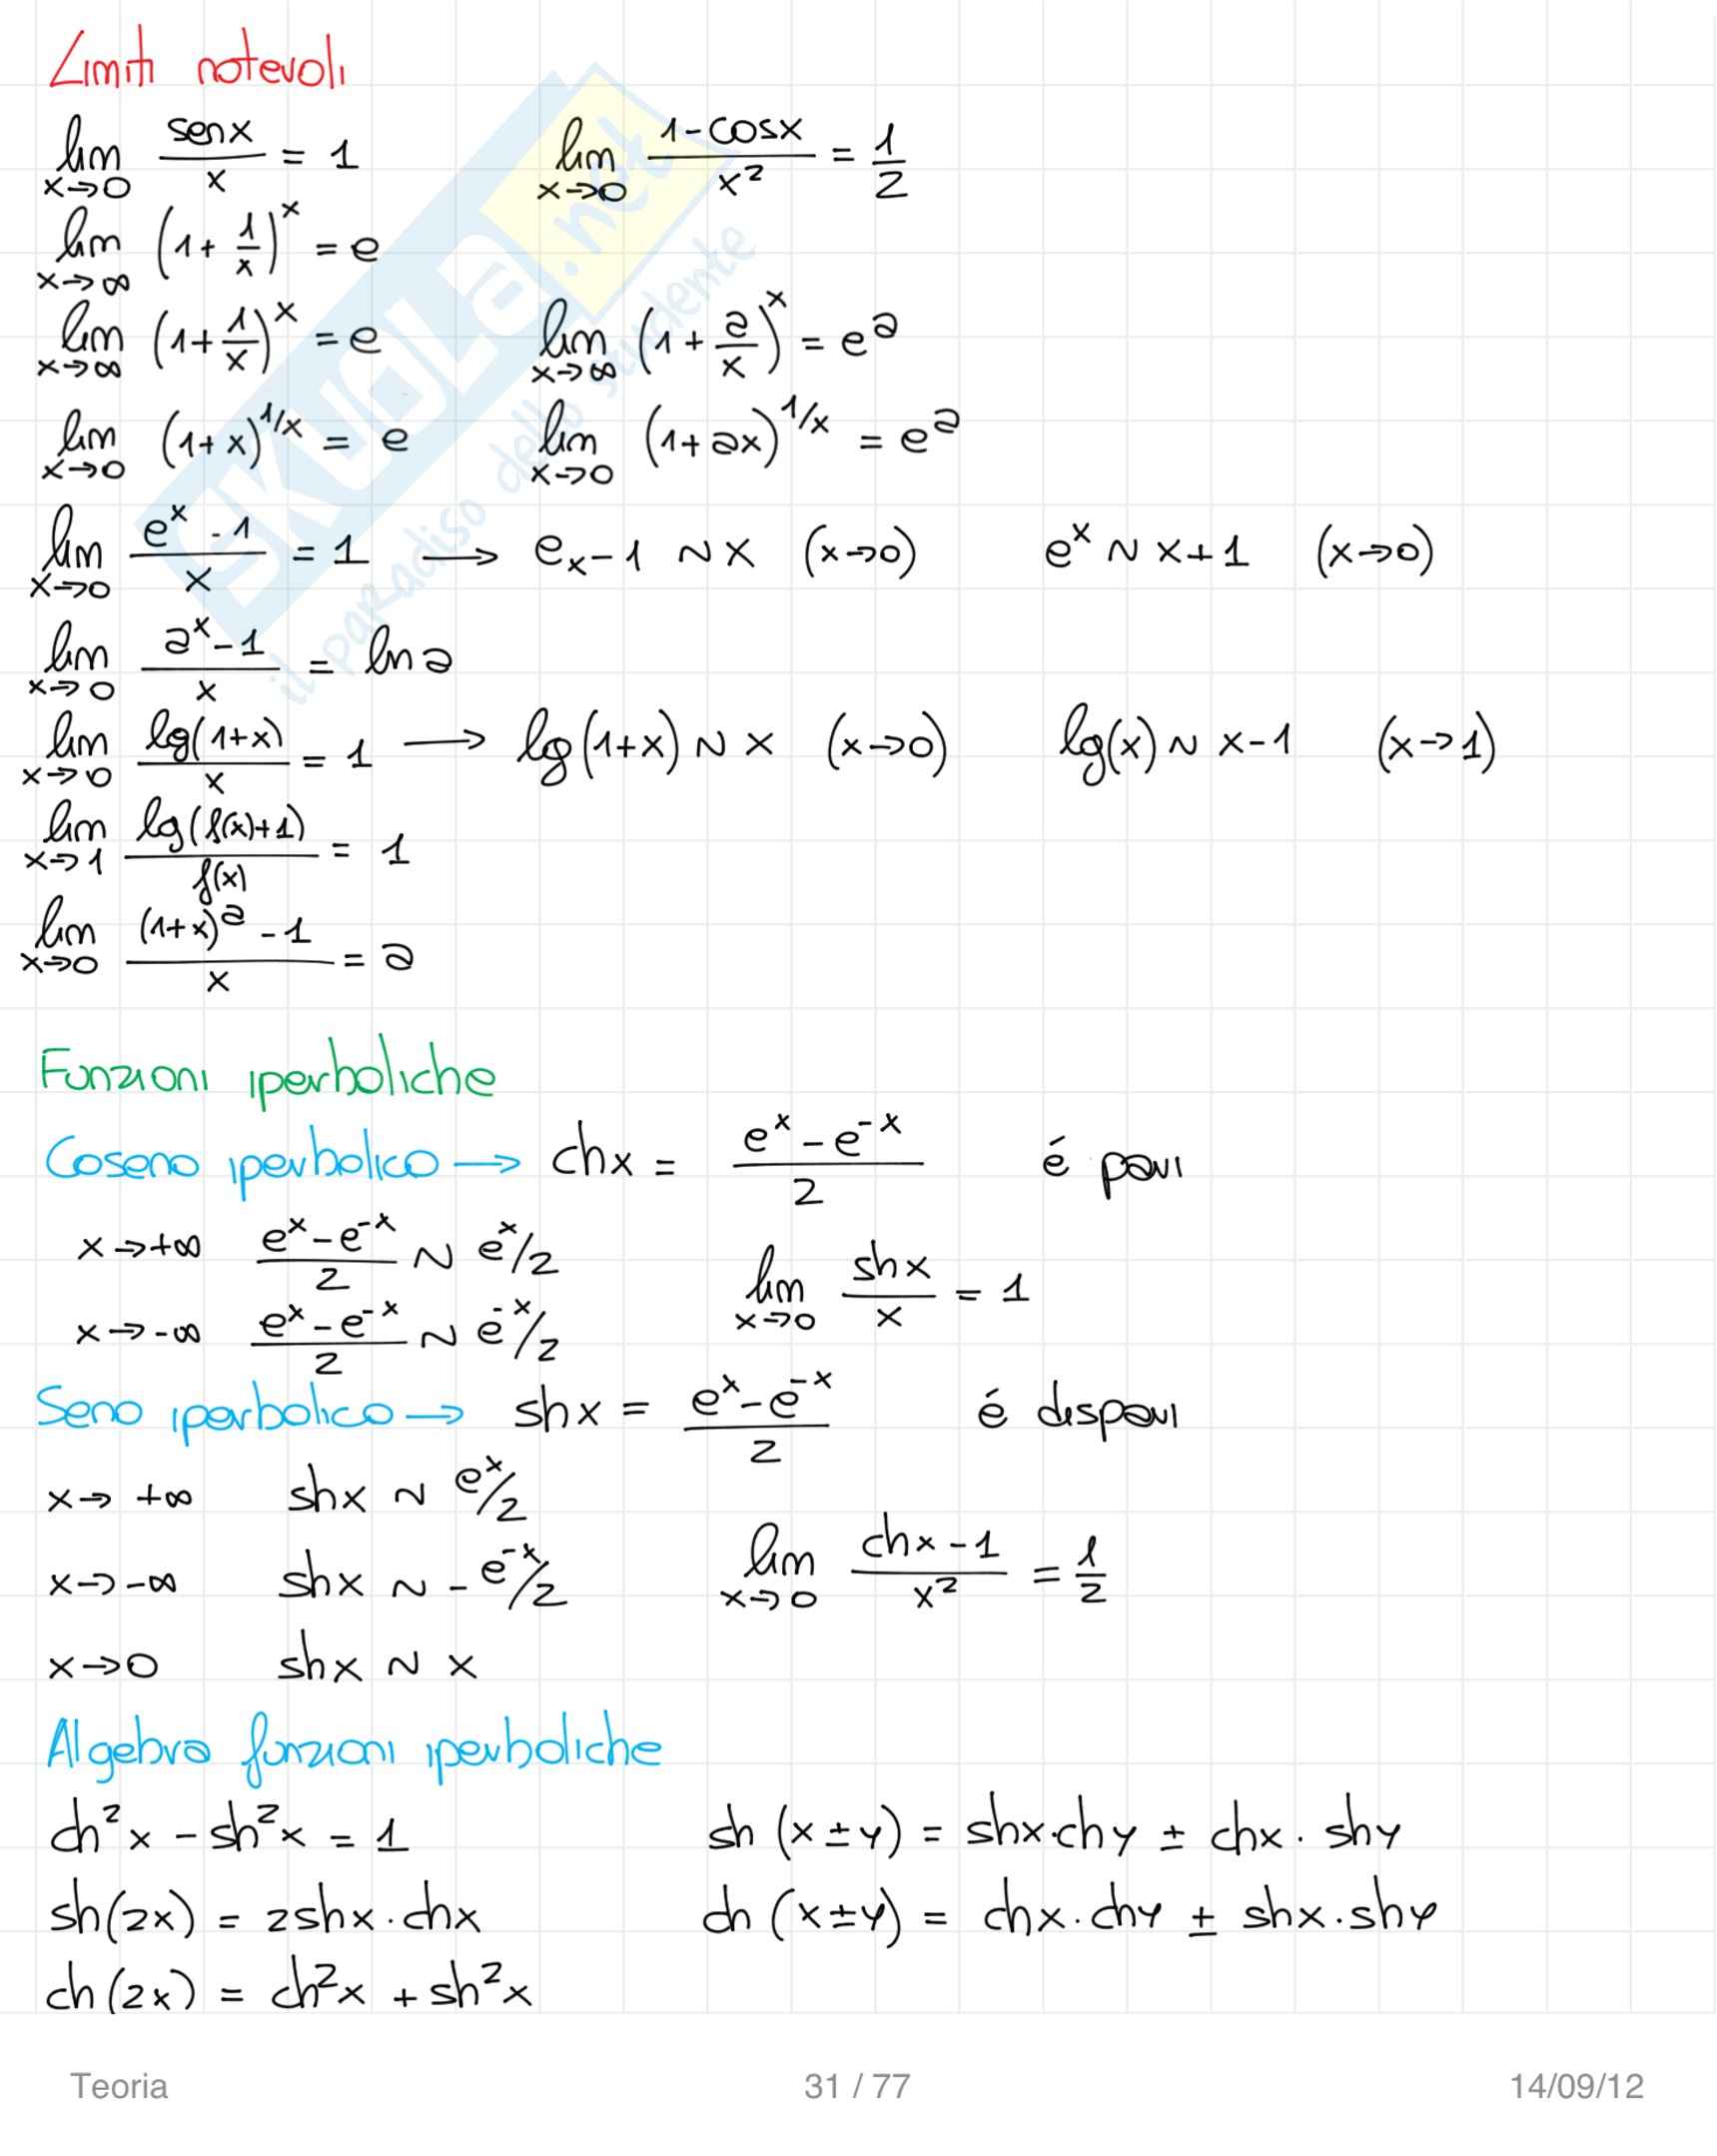 Limiti notevoli
lim x→0 senx/x = 1    lim x→0 (1-cosx)/x² = 1/2
lim x→∞ (1+ 1/x)^x = e
lim x→∞ (1+ 1/x)^x = e    lim x→∞ (1+ a/x)^x = e^a
lim x→0 (1+x)^1/x = e    lim x→0 (1+ax)^1/x = e^a
lim x→0 (e^x -1)/x = 1 → e_x-1 ~ x (x→0)    e^x ~ x+1 (x→0)
lim x→0 (a^x-1)/x = ln a
lim x→0 lg(1+x)/x = 1 → lg(1+x) ~ x (x→0)    lg(x) ~ x-1 (x→1)
lim x→1 lg(f(x)+1)/f(x) = 1
lim x→0 ((1+x)^a -1)/x = a
Funzioni iperboliche
Coseno iperbolico → chx = (e^x - e^-x)/2    é pari
x→+∞ (e^x - e^-x)/2 ~ e^x/2    lim x→0 shx/x = 1
x→-∞ (e^x - e^-x)/2 ~ e^-x/2
Seno iperbolico → shx = (e^x - e^-x)/2    é dispari
x→ +∞ shx ~ e^x/2
x→-∞ shx ~ - e^-x/2    lim x→0 (chx-1)/x² = 1/2
x→0 shx ~ x
Algebra funzioni iperboliche
ch²x - sh²x = 1    sh (x±y) = shx·chy ± chx·shy
sh(2x) = 2shx·chx    ch (x±y) = chx·chy ± shx·shy
ch(2x) = ch²x + sh²x
Teoria    31 / 77    14/09/12
SKUOLA.net
il paradiso dello studente